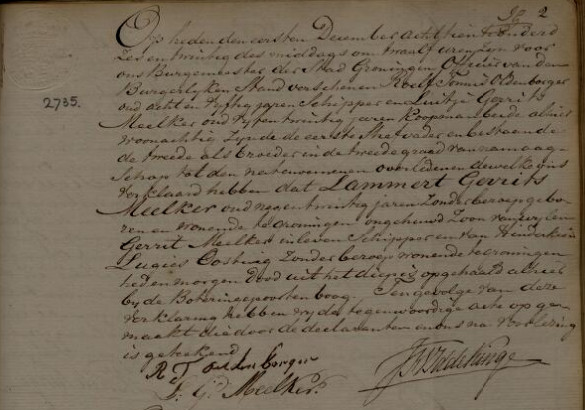 No 2
Op heden den eersten December achttien honderd
Zes en twintig des middags om twaalf uren zyn voor
ons Burgemeester der Stad Groningen Officier van den
Burgerlyken Stand verschenen Roelf Tonnis Oldenborger
oud acht en Vyftig jaren Schipper en Luitje Gerrits
2735.
Meelker oud Vyf en twintig jaren Koopman beide alhier
woonachtig Zynde de eerste Stiefvader en bestaande
de tweede als broeder in de tweede graad van zamaag-
schap tot den natenoemenen overledenen dewelke ons
verklaard hebben dat Lammert Gerrits
Meelker oud negen twintig jaren Zonder beroep gebo-
ren en wonende te Groningen ongehuwd Zoon van wylen
Gerrit Meelker in leven Schipper en van Hinderkien
Lugies Oosting Zonder beroep wonende te Groningen
heden morgen dood uit het diep is opgehaald alhier
by de Boteringepoortenboog. Ten gevolge van deze
verklaring hebben wy de tegenwoordige acte op ge-
maakt die door de declaranten en ons na voorlezing
is geteekend
R T Oldenborger
L. G. Meelker.